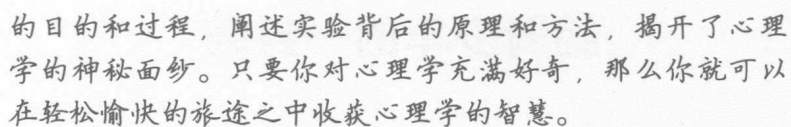 的目的和过程，阐述实验背后的原理和方法，揭开了心理
学的神秘面纱。只要你对心理学充满好奇，那么你就可以
在轻松愉快的旅途之中收获心理学的智慧。